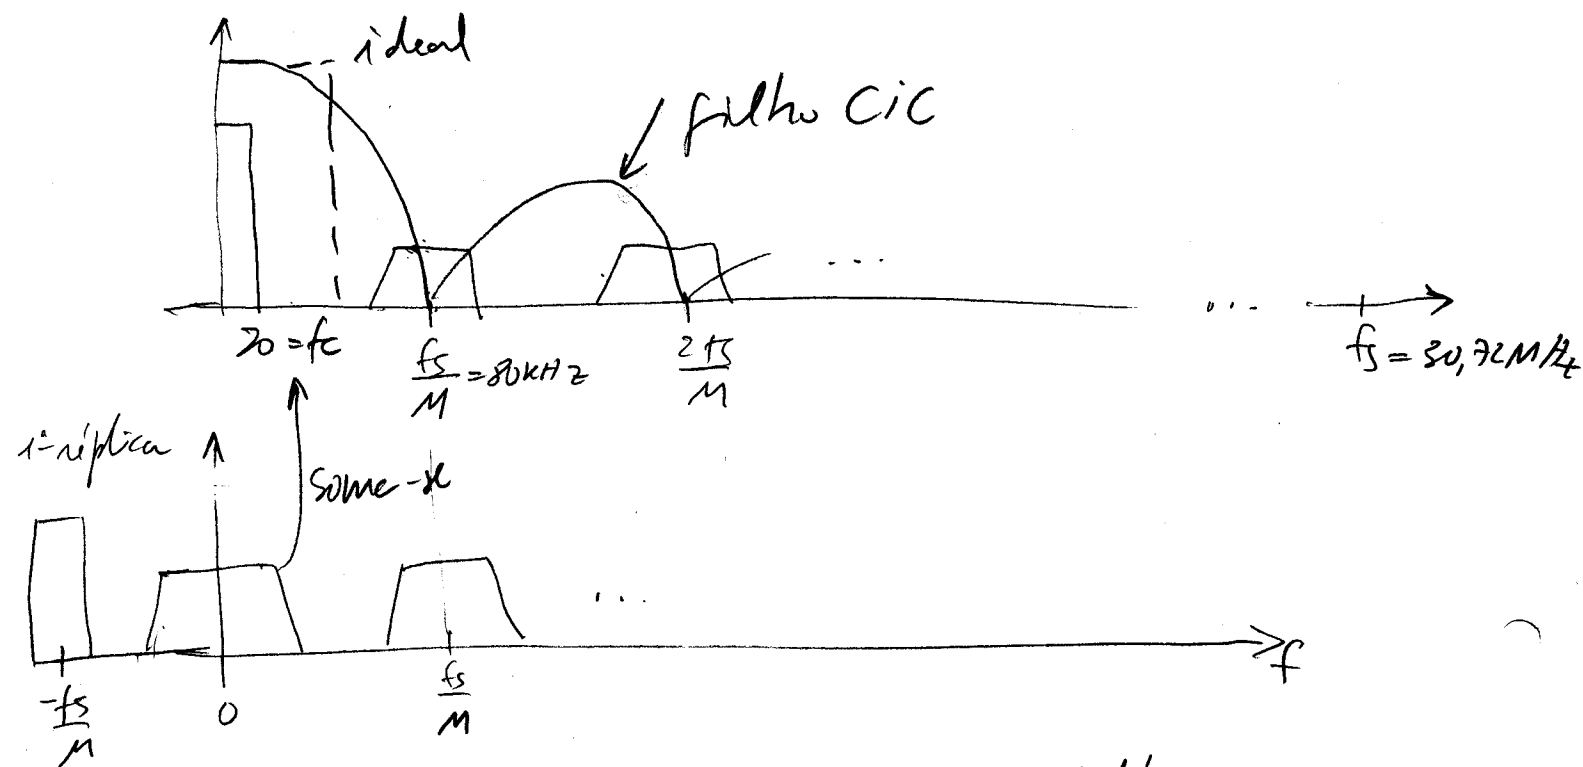 ideal
filtro CiC
...
...
20 = fc
fs/M = 80KHz
2fs/M
fs = 30,72MHz
1ª réplica
Soma-se
...
-fs/M
0
fs/M
f